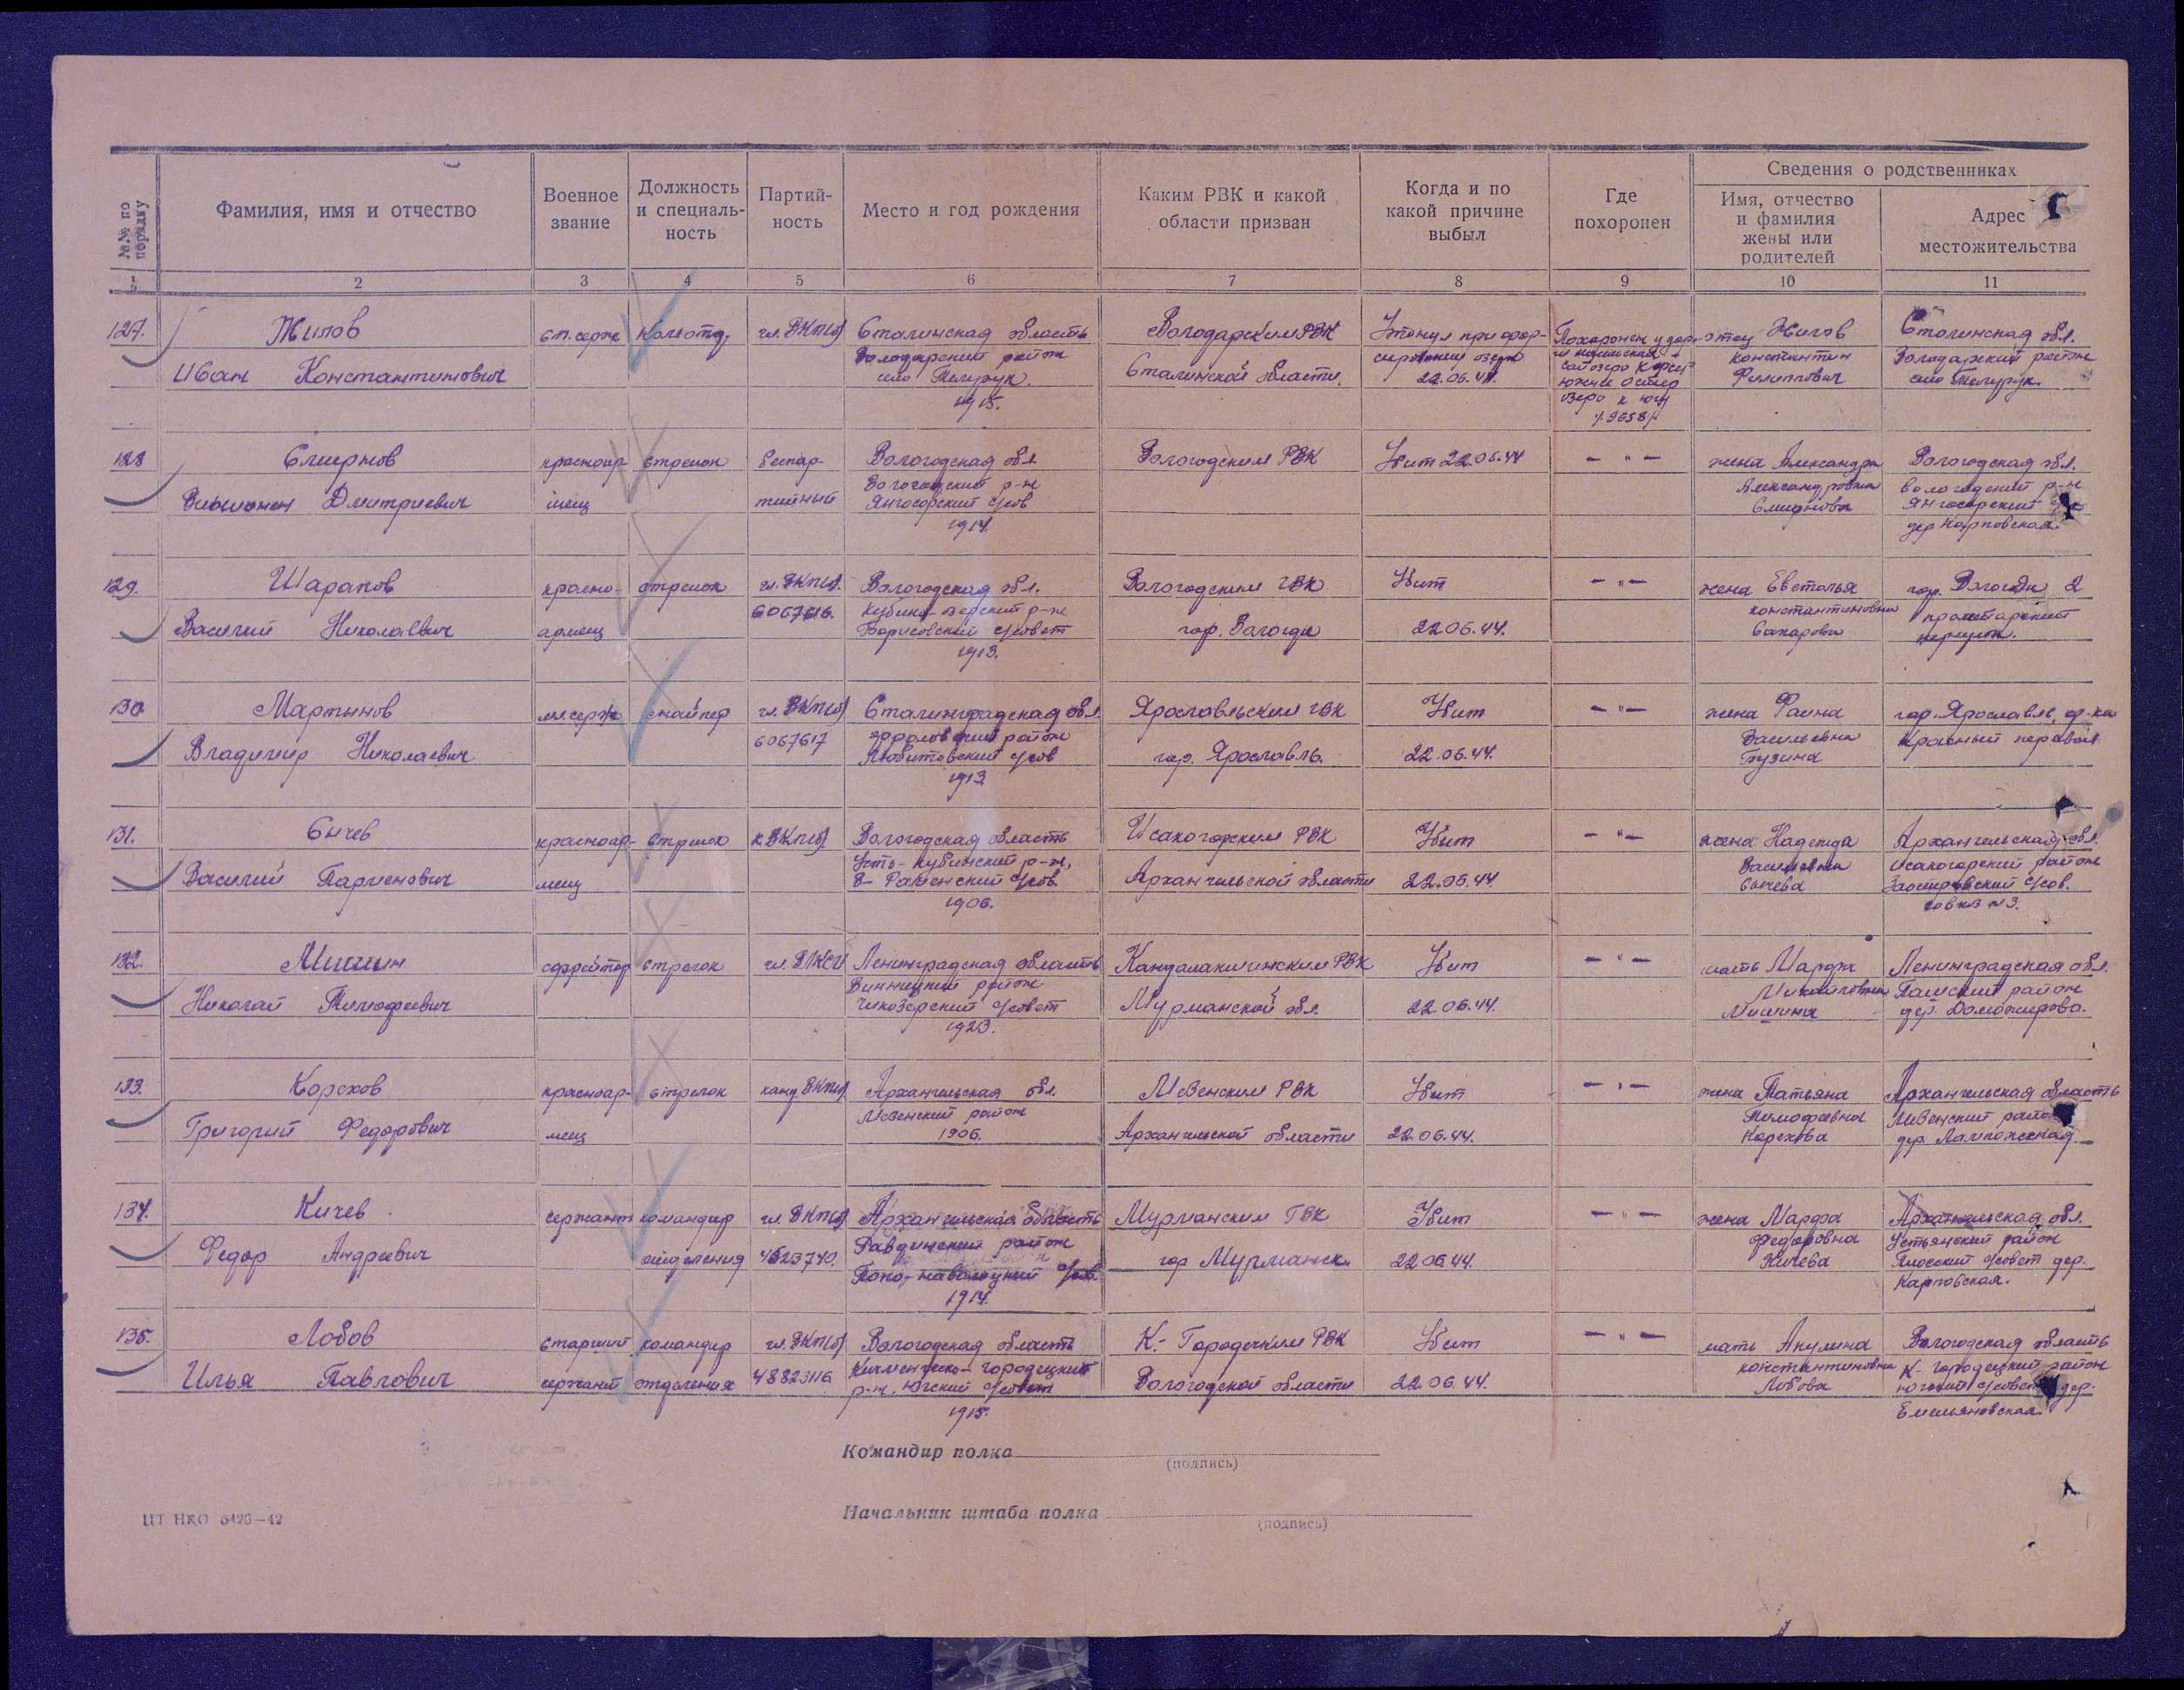 №№ по порядку
Фамилия, имя и отчество
Военное звание
Должность и специаль-ность
Партий-ность
Место и год рождения
Каким РВК и какой области призван
Когда и по какой причине выбыл
Где похоронен
Сведения о родственниках
Имя, отчество и фамилия жены или родителей
Адрес местожительства
1 2 3 4 5 6 7 8 9 10 11
127. Жилов ст. серж ком. отд. чл. ВКП(б) Сталинская область Володарским РВК Утонул при фор- отец Жилов Сталинская обл.
Иван Константинович Володарский район Сталинской области. сировании озера Константин Володарский район
село 22.06.44. Филиппович село
1915.
128 Смирнов красноар- стрелок беспар- Вологодская обл. Вологодским РВК Убит 22.06.44 — " — жена Александра Вологодская обл.
Дмитриевич меец тийный Вологодский р-н Александровна Вологодский р-н
Янгосорский с/сов Смирнова Янгосорский
1914. дер. Карповская.
129. Шарапов красно- стрелок чл. ВКП(б). Вологодская обл. Вологодским ГВК Убит — " — жена гор. Вологда 2
Василий Николаевич армеец 6067616. Кубино-озерский р-н гор. Вологда 22.06.44. Константиновна пролетарский
Борисовский с/совет
1913.
130 Мартынов мл. серж снайпер чл. ВКП(б) Сталинградская обл. Ярославским ГВК Убит — " — жена Фаина гор. Ярославль,
Владимир Николаевич 6067617 район гор. Ярославль. 22.06.44. Васильевна Красный перевал
с/сов
1913
131. Сычев красноар- стрелок к ВКП(б) Вологодская область Исакогорским РВК Убит — " — жена Надежда Архангельская обл.
Василий Парменович меец Усть-Кубинский р-н, Архангельской области 22.06.44. Васильевна Исакогорский район
В-Раменский с/сов. Сычева с/сов.
1906. №3.
132. Мишин ефрейтор стрелок Ленинградская область Кандалакшинским РВК Убит — " — мать Марфа Ленинградская обл.
Николай Тимофеевич Винницкий район Мурманской обл. 22.06.44. Михайловна Пашский район
с/совет Мишина дер. Доможирово.
1923.
133. Корехов красноар- стрелок канд. ВКП(б) Архангельская обл. Мезенским РВК Убит — " — жена Татьяна Архангельская область
Григорий Федорович меец Мезенский район Архангельской области 22.06.44. Тимофеевна Мезенский район
1906. Корехова дер.
134. Кичев сержант командир чл. ВКП(б) Архангельская область Мурманским ГВК Убит — " — жена Марфа Архангельская обл.
Федор Андреевич отделения 4623740. район гор Мурманск 22.06.44. Федоровна Устьянский район
с/сов. Кичева с/совет дер.
1914. Карповская.
135. Лобов старший командир чл. ВКП(б) Вологодская область К.-Городецким РВК Убит — " — мать Акулина Вологодская область
Илья Павлович сержант отделения 48823116 Кичменгско-городецкий Вологодской области 22.06.44. Константиновна К-городецкий район
р-н, Югский с/совет Лобова с/совет дер.
1915. Емельяновская.
Командир полка
(подпись)
Начальник штаба полка
(подпись)